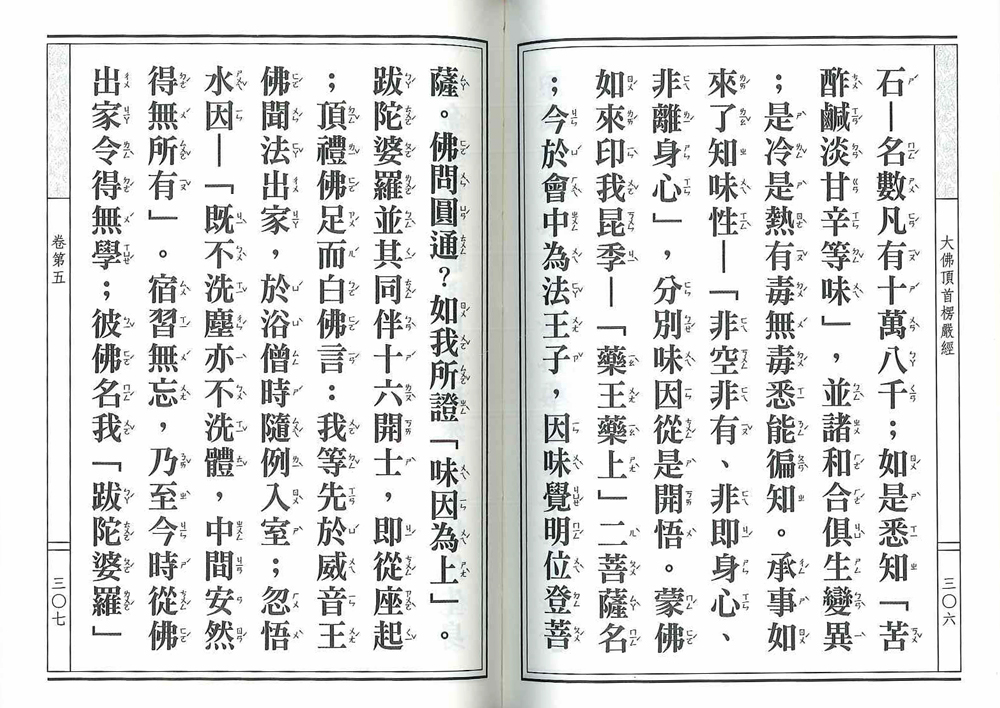 大佛頂首楞嚴經
三〇六
石—名數凡有十萬八千；如是悉知「苦
酢鹹淡甘辛等味」，並諸和合俱生變異
；是冷是熱有毒無毒悉能徧知。承事如
來了知味性—「非空非有、非即身心、
非離身心」，分別味因從是開悟。蒙佛
如來印我昆季—「藥王藥上」二菩薩名
；今於會中為法王子，因味覺明位登菩
薩。佛問圓通？如我所證「味因為上」。
跋陀婆羅並其同伴十六開士，即從座起
；頂禮佛足而白佛言：我等先於威音王
佛聞法出家，於浴僧時隨例入室；忽悟
水因—「既不洗塵亦不洗體，中間安然
得無所有」。宿習無忘，乃至今時從佛
出家令得無學；彼佛名我「跋陀婆羅」
卷第五
三〇七